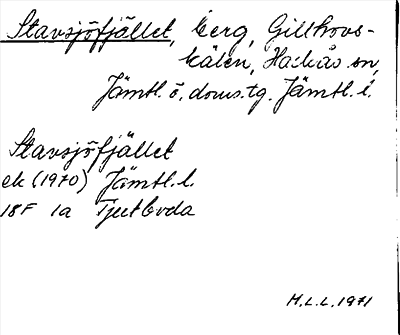 Stavsjöfjället, berg, Gillhovs-
kälen, Hackås sn,
Jämtl. ö. doms.tg. Jämtl. l.
Stavsjöfjället
ek (1970) Jämtl. l.
18F 1a Tjuvboda
H.L.L. 1971